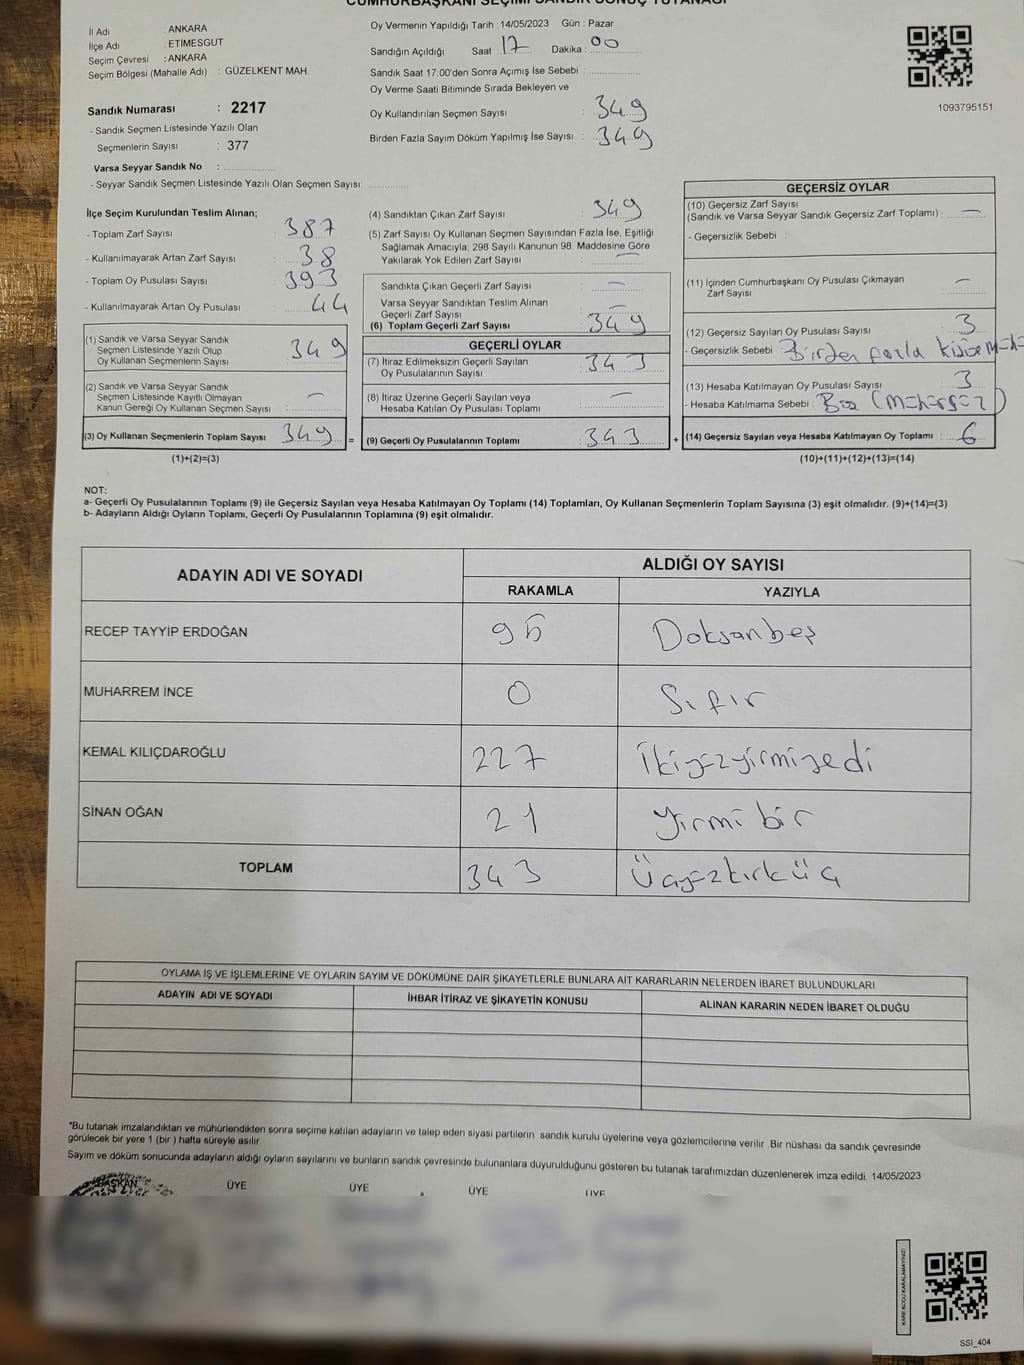 CUMHURBAŞKANI SEÇİMİ SANDIK SONUÇ TUTANAĞI
İl Adı : ANKARA
İlçe Adı : ETİMESGUT
Seçim Çevresi : ANKARA
Seçim Bölgesi (Mahalle Adı) : GÜZELKENT MAH.
Sandık Numarası : 2217
- Sandık Seçmen Listesinde Yazılı Olan
Seçmenlerin Sayısı : 377
Varsa Seyyar Sandık No :
- Seyyar Sandık Seçmen Listesinde Yazılı Olan Seçmen Sayısı:
Oy Vermenin Yapıldığı Tarih : 14/05/2023 Gün : Pazar
Sandığın Açıldığı Saat : 17 Dakika : 00
Sandık Saat 17:00'den Sonra Açımış İse Sebebi :
Oy Verme Saati Bitiminde Sırada Bekleyen ve
Oy Kullandırılan Seçmen Sayısı : 349
Birden Fazla Sayım Döküm Yapılmış İse Sayısı : 349
1093795151
İlçe Seçim Kurulundan Teslim Alınan;
- Toplam Zarf Sayısı : 387
- Kullanılmayarak Artan Zarf Sayısı : 38
- Toplam Oy Pusulası Sayısı : 393
- Kullanılmayarak Artan Oy Pusulası : 44
(1) Sandık ve Varsa Seyyar Sandık
Seçmen Listesinde Yazılı Olup
Oy Kullanan Seçmenlerin Sayısı : 349
(2) Sandık ve Varsa Seyyar Sandık
Seçmen Listesinde Kayıtlı Olmayan
Kanun Gereği Oy Kullanan Seçmen Sayısı : —
(3) Oy Kullanan Seçmenlerin Toplam Sayısı : 349 =
(1)+(2)=(3)
(4) Sandıktan Çıkan Zarf Sayısı : 349
(5) Zarf Sayısı Oy Kullanan Seçmen Sayısından Fazla İse, Eşitliği
Sağlamak Amacıyla; 298 Sayılı Kanunun 98. Maddesine Göre
Yakılarak Yok Edilen Zarf Sayısı : —
Sandıkta Çıkan Geçerli Zarf Sayısı : —
Varsa Seyyar Sandıktan Teslim Alınan
Geçerli Zarf Sayısı : —
(6) Toplam Geçerli Zarf Sayısı : 349
GEÇERLİ OYLAR
(7) İtiraz Edilmeksizin Geçerli Sayılan
Oy Pusulalarının Sayısı : 343
(8) İtiraz Üzerine Geçerli Sayılan veya
Hesaba Katılan Oy Pusulası Toplamı : —
(9) Geçerli Oy Pusulalarının Toplamı : 343 +
GEÇERSİZ OYLAR
(10) Geçersiz Zarf Sayısı
(Sandık ve Varsa Seyyar Sandık Geçersiz Zarf Toplamı) : —
- Geçersizlik Sebebi :
(11) İçinden Cumhurbaşkanı Oy Pusulası Çıkmayan
Zarf Sayısı : —
(12) Geçersiz Sayılan Oy Pusulası Sayısı : 3
- Geçersizlik Sebebi : Birden fazla kişiye
(13) Hesaba Katılmayan Oy Pusulası Sayısı : 3
- Hesaba Katılmama Sebebi : Boş (Mühürsüz)
(14) Geçersiz Sayılan veya Hesaba Katılmayan Oy Toplamı : 6
(10)+(11)+(12)+(13)=(14)
NOT:
a- Geçerli Oy Pusulalarının Toplamı (9) ile Geçersiz Sayılan veya Hesaba Katılmayan Oy Toplamı (14) Toplamları, Oy Kullanan Seçmenlerin Toplam Sayısına (3) eşit olmalıdır. (9)+(14)=(3)
b- Adayların Aldığı Oyların Toplamı, Geçerli Oy Pusulalarının Toplamına (9) eşit olmalıdır.
ADAYIN ADI VE SOYADI ALDIĞI OY SAYISI
RAKAMLA YAZIYLA
RECEP TAYYİP ERDOĞAN 95 Doksanbeş
MUHARREM İNCE 0 Sıfır
KEMAL KILIÇDAROĞLU 227 İkiyüzyirmiyedi
SİNAN OĞAN 21 Yirmibir
TOPLAM 343 Üçyüzkırküç
OYLAMA İŞ VE İŞLEMLERİNE VE OYLARIN SAYIM VE DÖKÜMÜNE DAİR ŞİKAYETLERLE BUNLARA AİT KARARLARIN NELERDEN İBARET BULUNDUKLARI
ADAYIN ADI VE SOYADI İHBAR İTİRAZ VE ŞİKAYETİN KONUSU ALINAN KARARIN NEDEN İBARET OLDUĞU
*Bu tutanak imzalandıktan ve mühürlendikten sonra seçime katılan adayların ve talep eden siyasi partilerin sandık kurulu üyelerine veya gözlemcilerine verilir. Bir nüshası da sandık çevresinde
görülecek bir yere 1 (bir ) hafta süreyle asılır.
Sayım ve döküm sonucunda adayların aldığı oyların sayılarını ve bunların sandık çevresinde bulunanlara duyurulduğunu gösteren bu tutanak tarafımızdan düzenlenerek imza edildi. 14/05/2023
BAŞKAN ÜYE ÜYE ÜYE ÜYE
KARE KODU KARALAMAYINIZ!
SSI_404